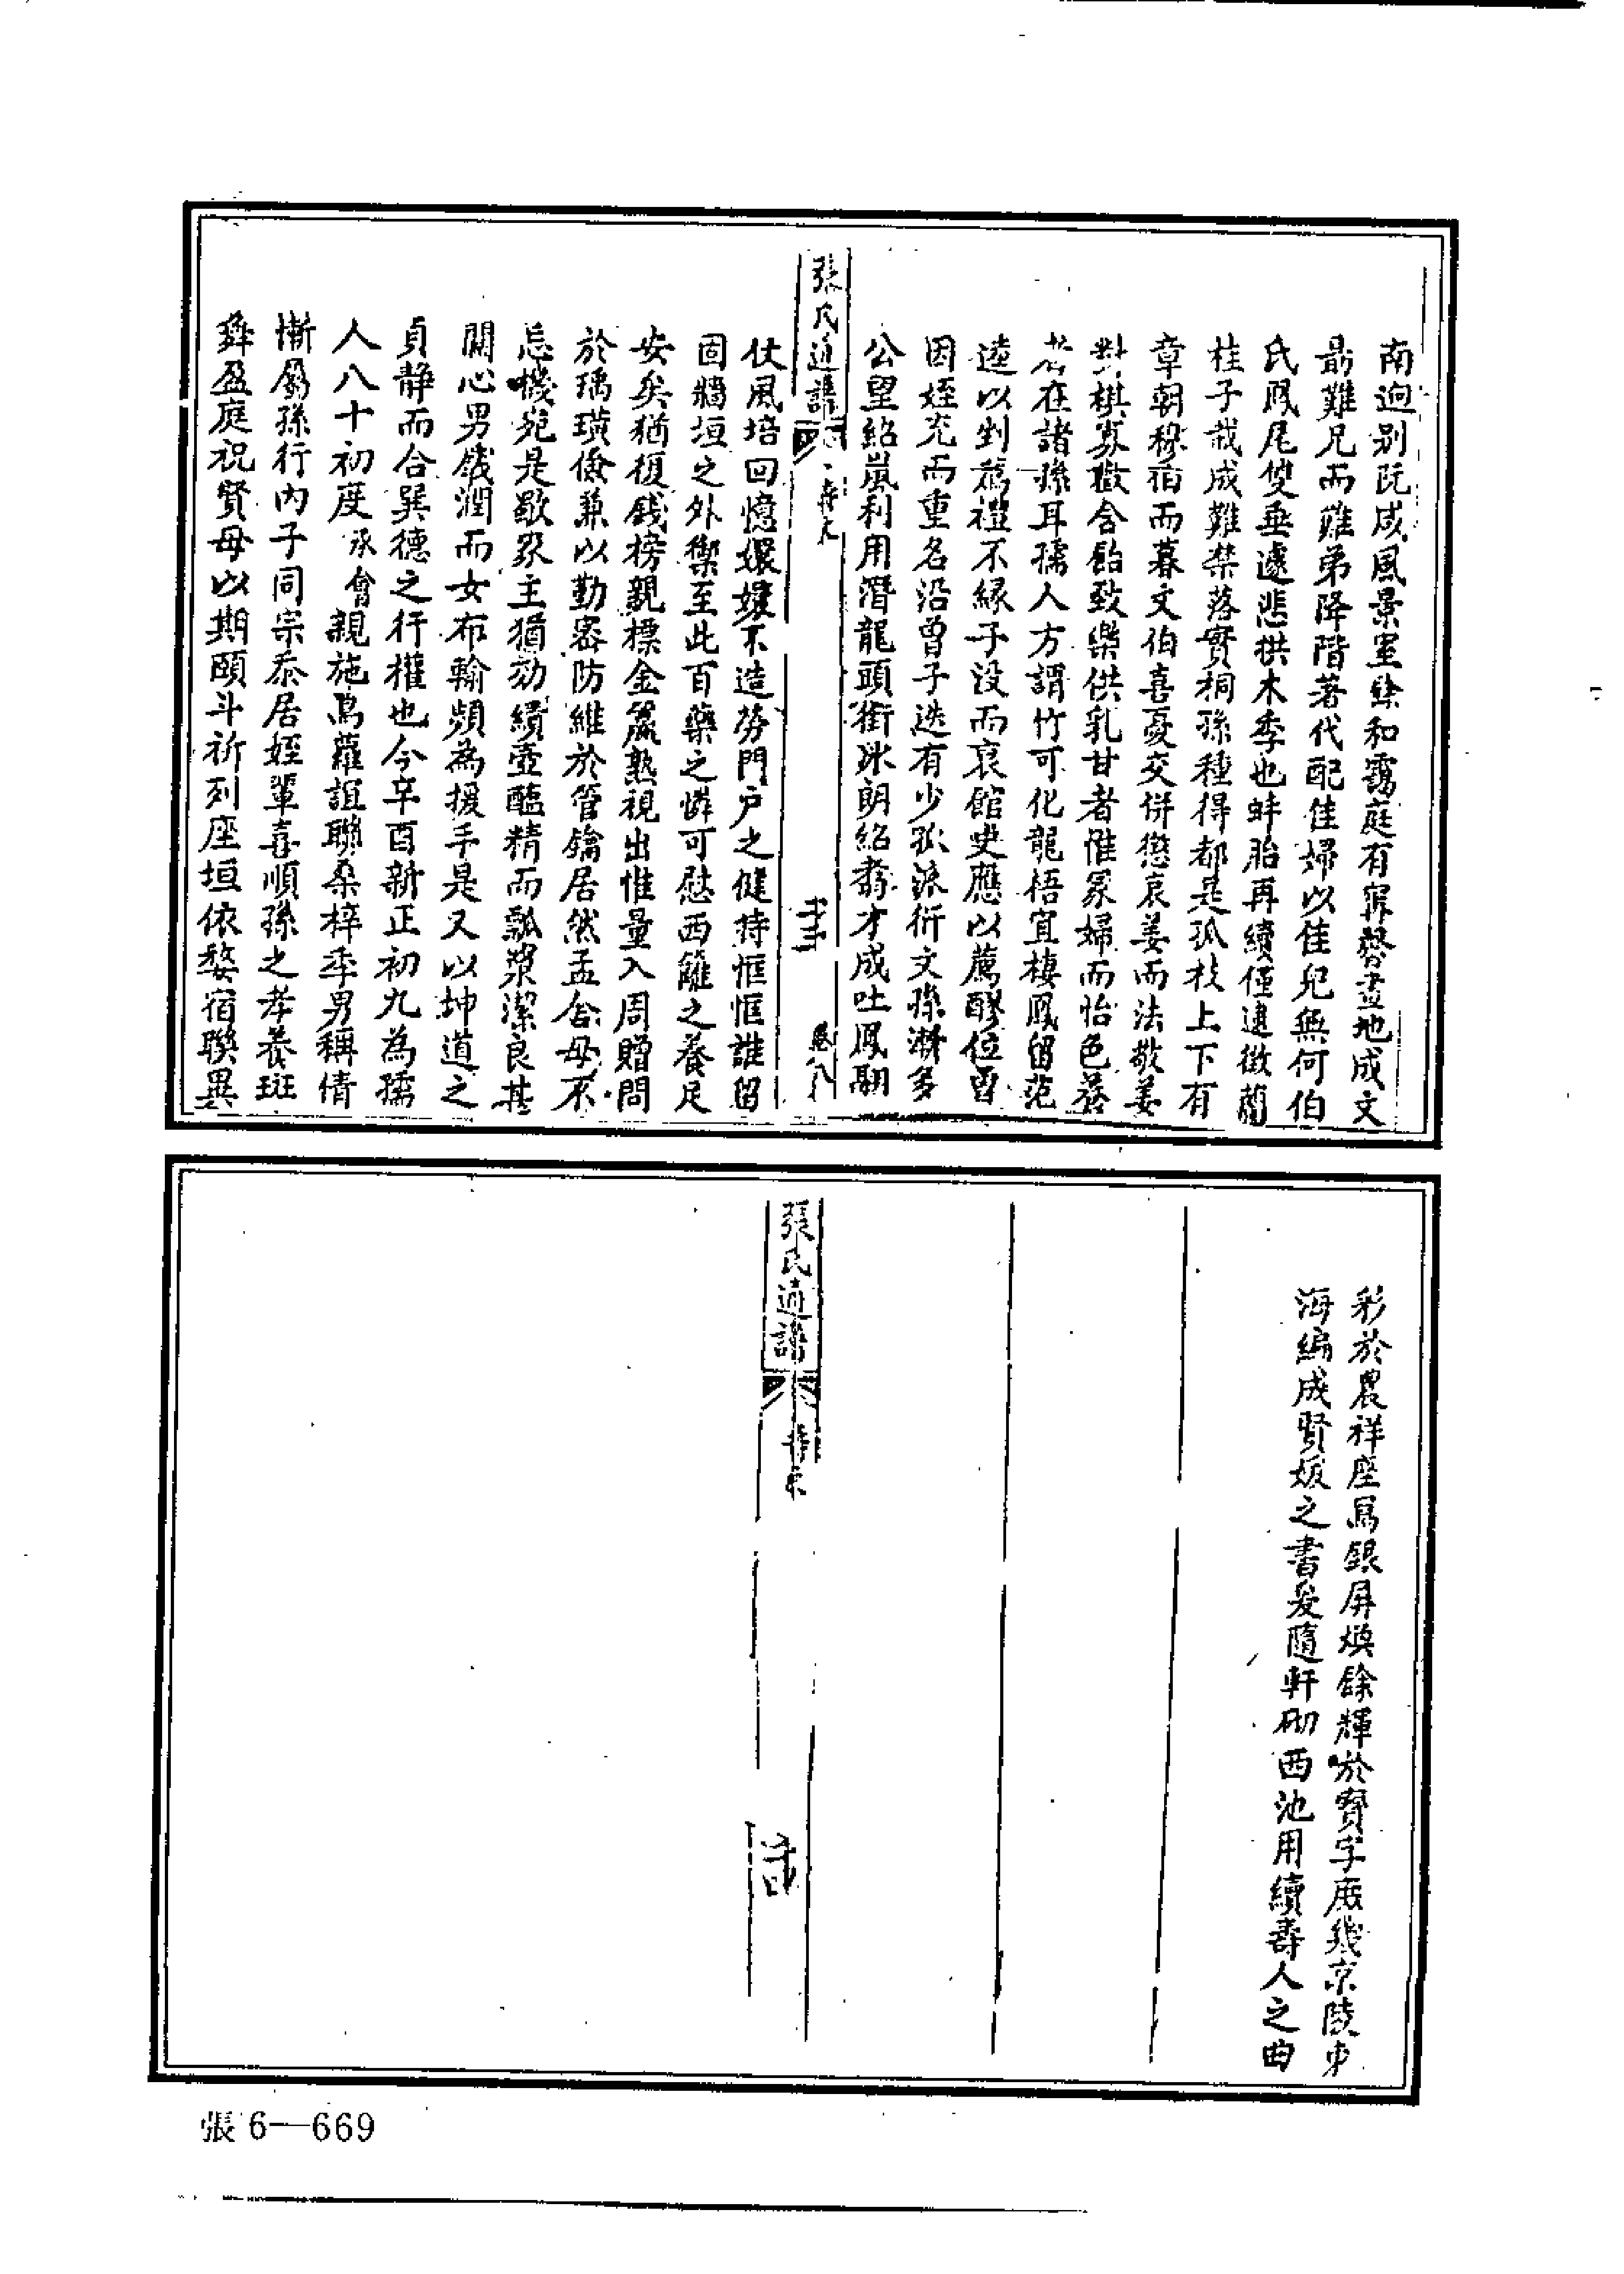 南逈别阮咸風景堊除和靄庭有寡發畫地成文
最難兄而難弟降階著代配佳婦以佳兒無何伯
氏鳳尾雙垂遽悲拱木季也蚌胎再續僅逮徵蘭
桂子哉成難禁落實桐孫種得都是孤枝上下有
章朝穆伯而暮文伯喜憂交併慾哀姜而法敬姜
對棋寡歡含飴致樂供乳甘者惟冢婦而怡色養
者在諸孫耳孺人方謂竹可化龍梧宜棲鳳留范
逵以剉薦禮不緣子没而衰館史應以薦醪位
因姪充而重名沿曾子迭有少孤派衍文孫漸多
公望紹嵐利用潛龍頭銜氷朗紹翥才成吐鳳翮
張氏通譜
壽文
卷八
仗風培回憶嬛嬛不造勞門户之健持恇恇誰留
固牆垣之外禦至此百藥之憐可慰西籬之養足
安矣猶復錢榜親標金籯熟視出惟量入周贈問
於瑀璜儉兼以勤密防維於管鑰居然孟舍母不
忘機宛是歜家主猶効績壺醢精而瓢漿潔良甚
關心男餞潤而女布輸頻為援手是又以坤道之
貞靜而合巽德之行權也今辛酉新正初九為孺
人八十初度承會親施蔦蘿誼聯桑梓季男稱倩
慚屬孫行內子同宗忝居姪輩喜順孫之孝養斑
舞盈庭祝賢母以期頤斗祈列座垣依婺宿聯異
彩於農祥座寫銀屏煥餘輝於寳字庶幾京陵東
海編成賢媛之書爰隨軒砌西池用續壽人之曲
張氏通譜
壽文
張6—669